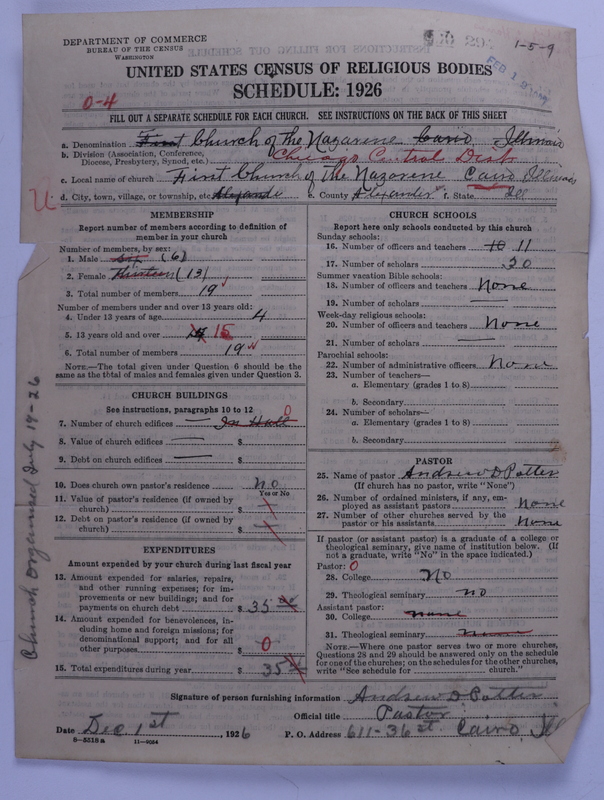 DEPARTMENT OF COMMERCE
BUREAU OF THE CENSUS
WASHINGTON
1-5-9
UNITED STATES CENSUS OF RELIGIOUS BODIES
SCHEDULE: 1926
0-4
FILL OUT A SEPARATE SCHEDULE FOR EACH CHURCH. SEE INSTRUCTIONS ON THE BACK OF THIS SHEET
a. Denomination First Church of the Nazarene Cairo, Illinois
b. Division (Association, Conference, Diocese, Presbytery, Synod, etc.) Chicago Central Dist
c. Local name of church First Church of the Nazarene Cairo, Illinois
d. City, town, village, or township, etc. Alexander e. County Alexander f. State Ill
MEMBERSHIP
Report number of members according to definition of
member in your church
Number of members, by sex:
1. Male Six (6)
2. Female Thirteen (13)
3. Total number of members 19
Number of members under and over 13 years old:
4. Under 13 years of age 4
5. 13 years old and over 15
6. Total number of members 19
NOTE.—The total given under Question 6 should be the
same as the total of males and females given under Question 3.
CHURCH BUILDINGS
See instructions, paragraphs 10 to 12
7. Number of church edifices In Hall 0
8. Value of church edifices $
9. Debt on church edifices $
10. Does church own pastor's residence? No
Yes or No
11. Value of pastor's residence (if owned by
church) $
12. Debt on pastor's residence (if owned by
church) $
EXPENDITURES
Amount expended by your church during last fiscal year
13. Amount expended for salaries, repairs,
and other running expenses; for im-
provements or new buildings; and for
payments on church debt $ 35
14. Amount expended for benevolences, in-
cluding home and foreign missions; for
denominational support; and for all
other purposes $ 0
15. Total expenditures during year $ 35
Church organized July 19-26
CHURCH SCHOOLS
Report here only schools conducted by this church
Sunday schools:
16. Number of officers and teachers 10 11
17. Number of scholars 30
Summer vacation Bible schools:
18. Number of officers and teachers None
19. Number of scholars
Week-day religious schools:
20. Number of officers and teachers None
21. Number of scholars
Parochial schools:
22. Number of administrative officers None
23. Number of teachers—
a. Elementary (grades 1 to 8)
b. Secondary
24. Number of scholars—
a. Elementary (grades 1 to 8)
b. Secondary
PASTOR
25. Name of pastor Andrew D Potter
(If church has no pastor, write "None")
26. Number of ordained ministers, if any, em-
ployed as assistant pastors None
27. Number of other churches served by the
pastor or his assistants None
If pastor (or assistant pastor) is a graduate of a college or
theological seminary, give name of institution below. (If
not a graduate, write "No" in the space indicated.)
Pastor: 0
28. College No
29. Theological seminary no
Assistant pastor:
30. College none
31. Theological seminary none
NOTE.—Where one pastor serves two or more churches,
Questions 28 and 29 should be answered only on the schedule
for one of the churches; on the schedules for the other churches,
write "See schedule for church."
Signature of person furnishing information Andrew D Potter
Official title Pastor
Date Dec. 1st, 1926 P. O. Address 611-36 st. Cairo, Ill
8-5518 a 11-9034